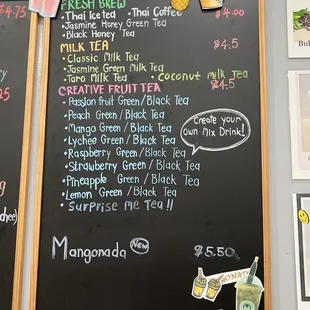 $4.75
FRESH BREW
• Thai Iced tea • Thai Coffee $4.00
• Jasmine Honey Green Tea
• Black Honey Tea
MILK TEA $4.5
• Classic Milk Tea
• Jasmine Green Milk Tea
• Taro Milk Tea • Coconut Milk Tea
CREATIVE FRUIT TEA $4.5
• Passion fruit Green/Black Tea
• Peach Green/Black Tea
• Mango Green/Black Tea
• Lychee Green/Black Tea
• Raspberry Green/Black Tea
• Strawberry Green/Black Tea
• Pineapple Green/Black Tea
• Lemon Green/Black Tea
• Surprise me Tea!!
Create your
own Mix Drink!
Mangonada New $5.50